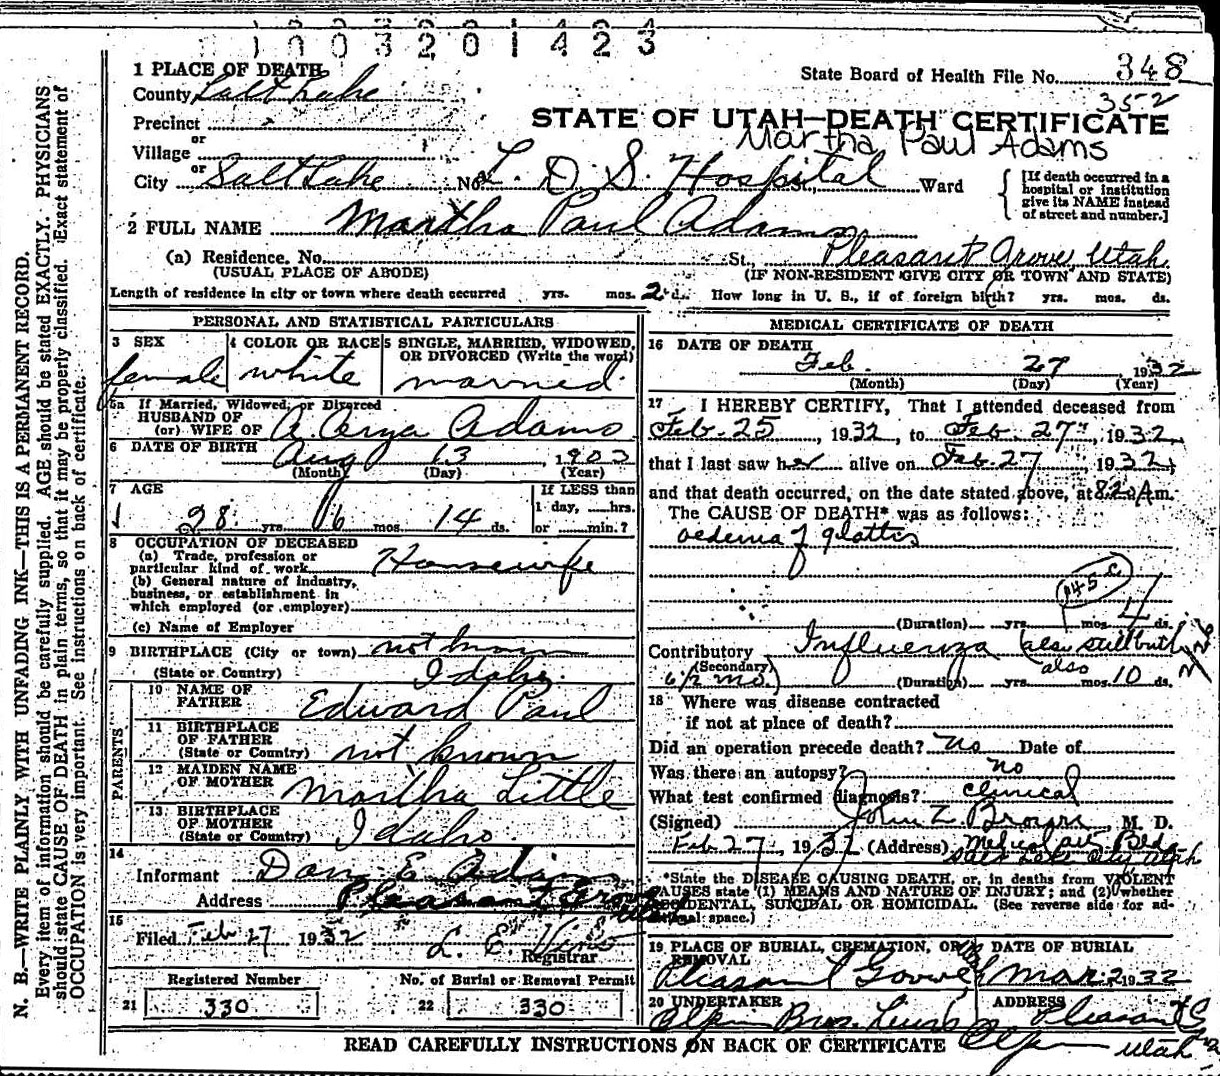 1003201423
1 PLACE OF DEATH
State Board of Health File No. 348
County Salt Lake
352
Precinct
STATE OF UTAH—DEATH CERTIFICATE
or
Martha Paul Adams
Village
or
City Salt Lake No. L. D. S. Hospital St., Ward
[If death occurred in a hospital or institution give its NAME instead of street and number.]
2 FULL NAME Martha Paul Adams
(a) Residence. No. St. Pleasant Grove, Utah
(USUAL PLACE OF ABODE) (IF NON-RESIDENT GIVE CITY OR TOWN AND STATE)
Length of residence in city or town where death occurred yrs. mos. 2 ds. How long in U. S., if of foreign birth? yrs. mos. ds.
PERSONAL AND STATISTICAL PARTICULARS
3 SEX
female
4 COLOR OR RACE
white
5 SINGLE, MARRIED, WIDOWED, OR DIVORCED (Write the word)
married
5a If Married, Widowed, or Divorced
HUSBAND OF
(or) WIFE OF Adams
6 DATE OF BIRTH Aug 13, 1903
(Month) (Day) (Year)
7 AGE
28 yrs. 6 mos. 14 ds.
If LESS than
1 day, hrs.
or min.?
8 OCCUPATION OF DECEASED
(a) Trade, profession or
particular kind of work Housewife
(b) General nature of industry,
business, or establishment in
which employed (or employer)
(c) Name of Employer
9 BIRTHPLACE (City or town) not known
(State or Country) Idaho.
PARENTS
10 NAME OF
FATHER Edward Paul
11 BIRTHPLACE
OF FATHER
(State or Country) not known
12 MAIDEN NAME
OF MOTHER Martha Little
13 BIRTHPLACE
OF MOTHER
(State or Country) Idaho.
14
Informant Don E Adams
Address Pleasant Grove
15
Filed Feb 27 1932 L. E.
Registrar
Registered Number No. of Burial or Removal Permit
21 330 22 330
MEDICAL CERTIFICATE OF DEATH
16 DATE OF DEATH
Feb. 27 1932
(Month) (Day) (Year)
17 I HEREBY CERTIFY, That I attended deceased from
Feb. 25, 1932, to Feb. 27, 1932,
that I last saw her alive on Feb. 27, 1932,
and that death occurred, on the date stated above, at 8 20 A m.
The CAUSE OF DEATH* was as follows:
oedema of glottis
145-c
(Duration) yrs. mos. 4 ds.
Contributory Influenza (also stillbirth
(Secondary) also
6 1/2 mo.) (Duration) yrs. mos. 10 ds.
2/26
18 Where was disease contracted
if not at place of death?
Did an operation precede death? No Date of
Was there an autopsy? no
What test confirmed diagnosis? clinical
(Signed) John Z Brown, M. D.
Feb 27, 1932 (Address) Medical Arts Bldg
Salt Lake City Utah
*State the DISEASE CAUSING DEATH, or, in deaths from VIOLENT
CAUSES state (1) MEANS AND NATURE OF INJURY; and (2) whether
ACCIDENTAL, SUICIDAL OR HOMICIDAL. (See reverse side for additional space.)
19 PLACE OF BURIAL, CREMATION, OR REMOVAL DATE OF BURIAL
Pleasant Grove Mar. 2, 1932
20 UNDERTAKER ADDRESS
Olpin Bros. Pleasant G
Utah
READ CAREFULLY INSTRUCTIONS ON BACK OF CERTIFICATE
N. B.—WRITE PLAINLY WITH UNFADING INK—THIS IS A PERMANENT RECORD.
Every item of information should be carefully supplied. AGE should be stated EXACTLY. PHYSICIANS
should state CAUSE OF DEATH in plain terms, so that it may be properly classified. Exact statement of
OCCUPATION is very important. See instructions on back of certificate.